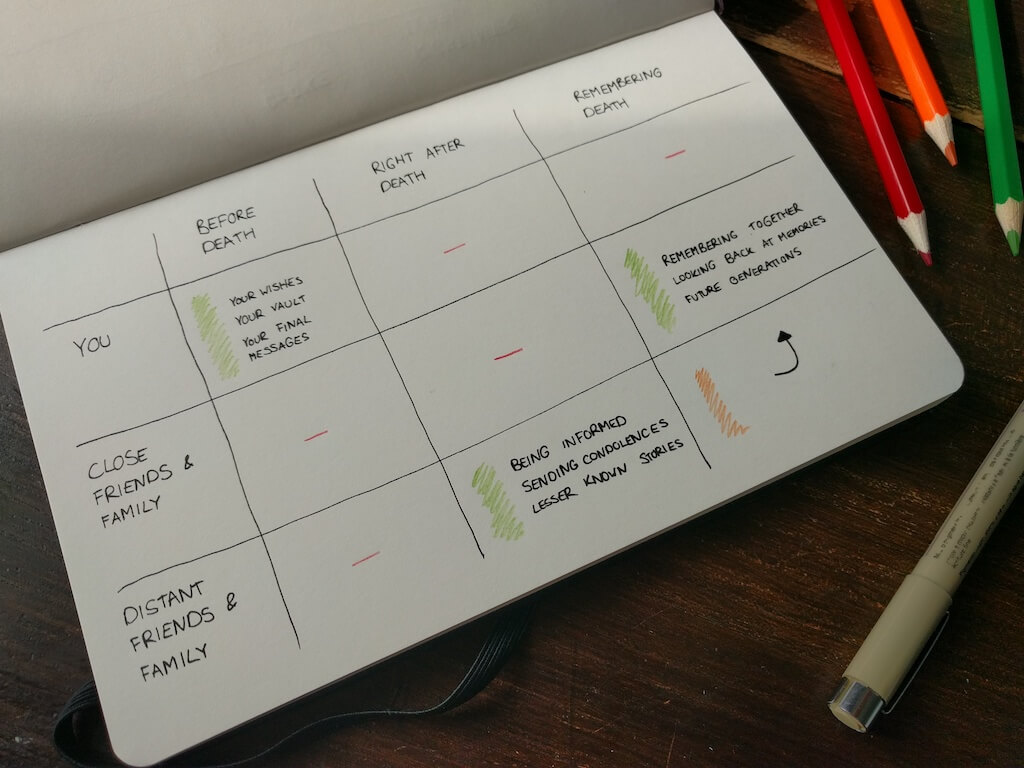 BEFORE
DEATH
RIGHT AFTER
DEATH
REMEMBERING
DEATH
YOU
YOUR WISHES
YOUR VAULT
YOUR FINAL
MESSAGES
-
-
CLOSE
FRIENDS &
FAMILY
-
-
REMEMBERING TOGETHER
LOOKING BACK AT MEMORIES
FUTURE GENERATIONS
DISTANT
FRIENDS &
FAMILY
-
BEING INFORMED
SENDING CONDOLENCES
LESSER KNOWN STORIES